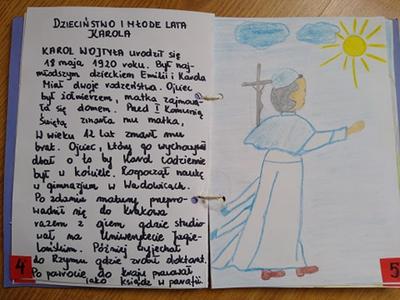 DZIECIŃSTWO I MŁODE LATA
KAROLA
KAROL WOJTYŁA urodził się
18 maja 1920 roku. Był naj-
młodszym dzieckiem Emilii i Karola
Miał dwoje rodzeństwa. Ojciec
był żołnierzem, matka zajmowa-
ła się domem. Przed I Komunią
Świętą zmarła mu matka,
W wieku 12 lat zmarł mu
brat. Ojciec, który go wychowywał
dbał o to by Karol codziennie
był w kościele. Rozpoczął naukę
w gimnazjum w Wadowicach.
Po zdaniu matury przepro-
wadził się do Krakowa
razem z ojcem gdzie studio-
wał na Uniwersytecie Jagie-
lońskim. Później wyjechał
do Rzymu gdzie zrobił doktorat.
Po powrocie do kraju pracował
jako ksiądz w parafii.
4
5